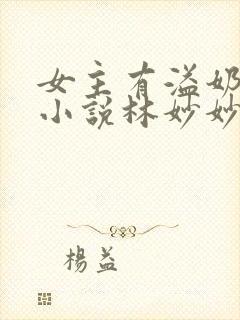 女主有溢奶
小說林妙妙
楊益